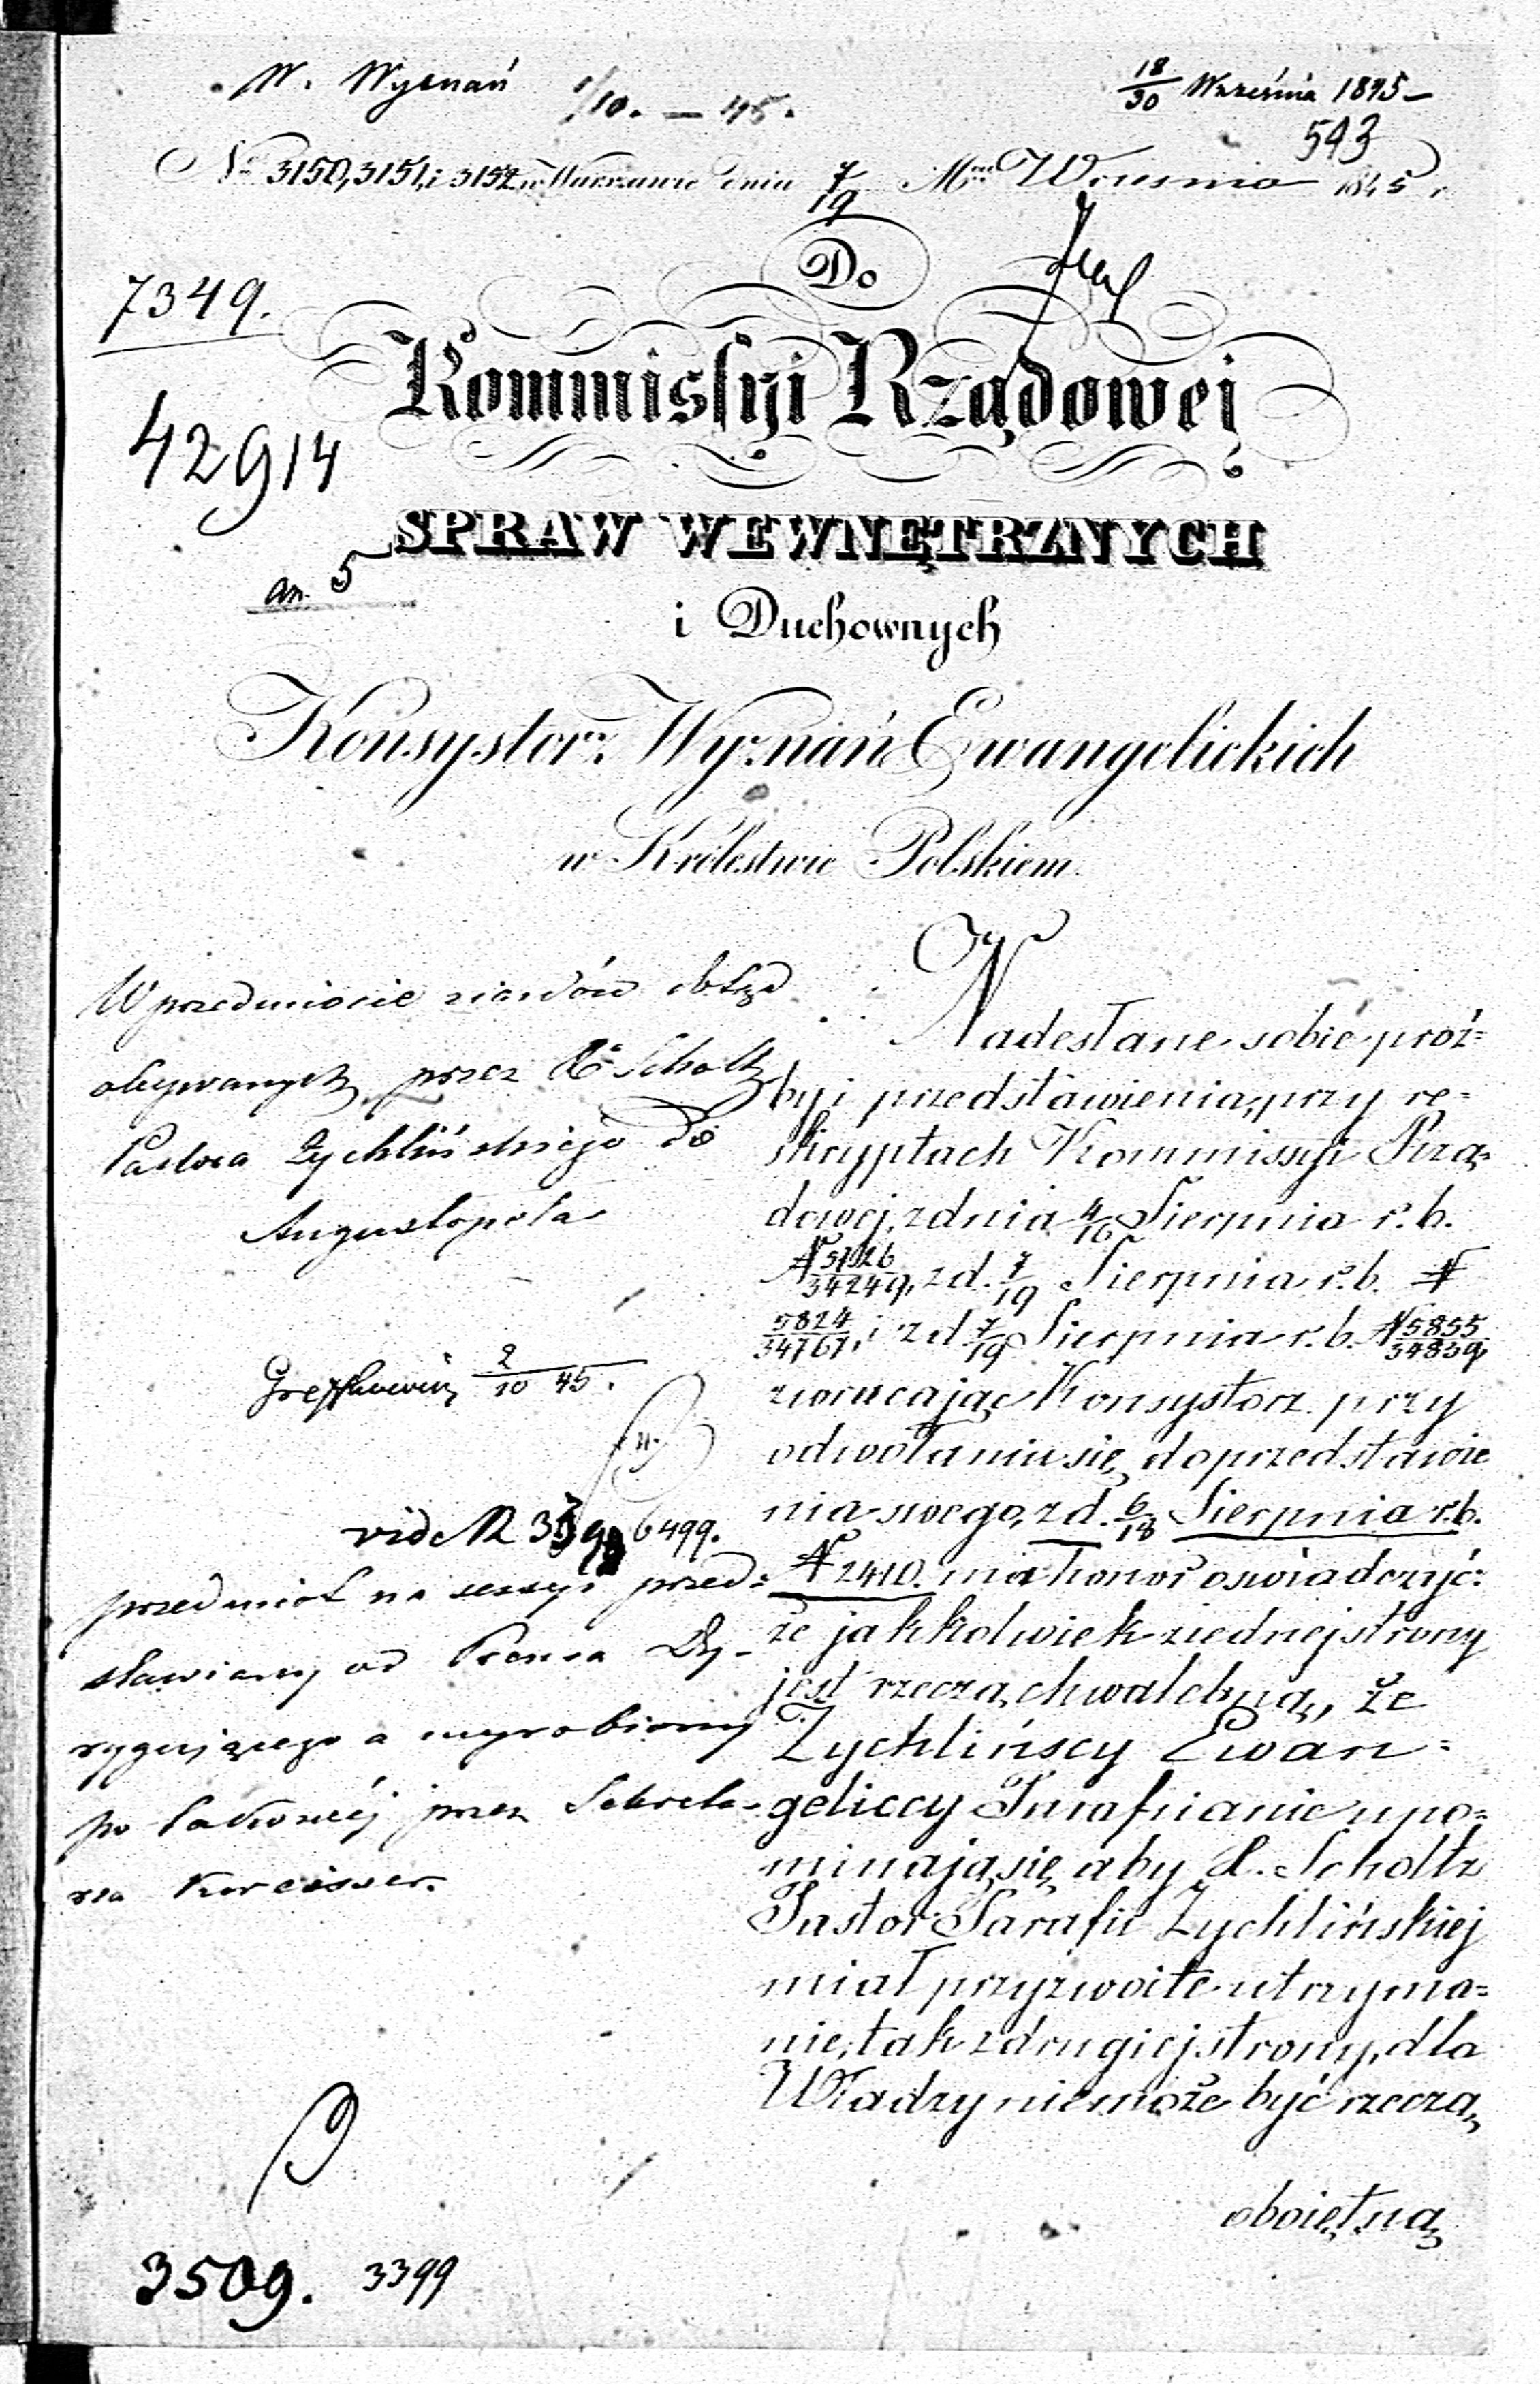 W. Wyznań 1/10. – 45.
18/30 Września 1845 –
543
No 3150, 3151, i 3152 w Warszawie dnia 7/19 Mca Września 1845 r.
Do
7349.
Kommissyi Rządowej
42914
SPRAW WEWNĘTRZNYCH
an. 5
i Duchownych
Konsystorz Wyznań Ewangelickich
w Królestwie Polskiem.
W przedmiocie
przez X. Scholtz
Pastora Żychlińskiego do
Augustopola
2/10 45.
vide N 3398/6499.
przedmiot na sessyi przed=
stawiany od Prezesa Dy-
rygującego a wyrobiony
po takowéj przez Sekreta-
rza
3509. 3399
Nadesłane sobie proź=
by i przedstawienia, przy re=
skryptach Kommissyi Rzą=
dowej, z dnia 4/16 Sierpnia r. b.
N 5726/34249, z d. 7/19 Sierpnia r. b. N
5824/34767, i z d. 7/19 Sierpnia r. b. N 5855/34839,
zwracając Konsystorz przy
odwołaniu się do przedstawie
nia swego, z d. 6/18 Sierpnia r. b.
N 2410. ma honor oświadczyć:
że jakkolwiek z iednej strony
jest rzeczą chwalebną, że
Żychlińscy Ewan=
geliccy Parafianie upo=
minają się, aby X. Scholtz
Pastor Parafii Żychlińskiej
miał przyzwoite utrzyma=
nie, tak z drugiej strony, dla
Władzy niemoże być rzeczą,
oboiętną